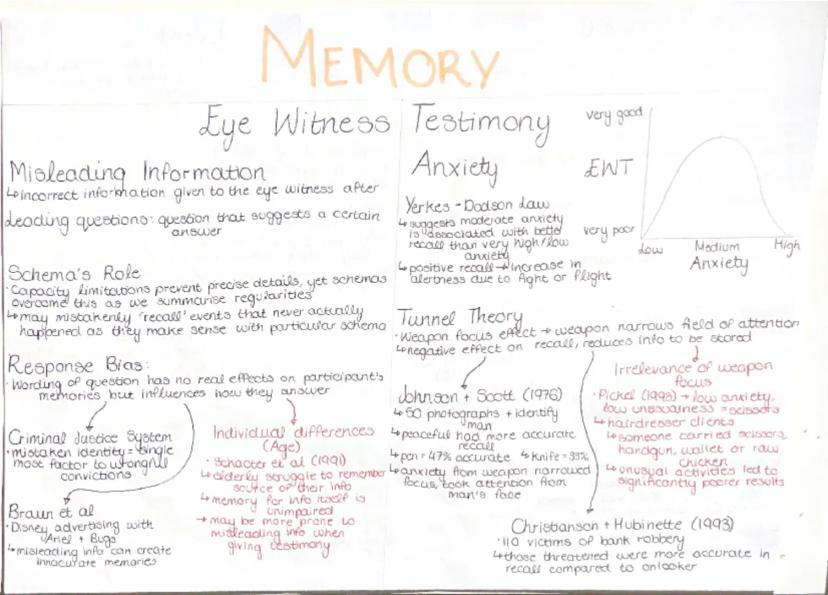 MEMORY
Eye Witness Testimony
Misleading Information
↳incorrect information given to the eye witness after
Leading questions: question that suggests a certain
answer
Schema's Role
· Capacity limitations prevent precise details, yet schemas
overcome this as we summarise regularities
↳may mistakenly 'recall' events that never actually
happened as they make sense with particular schema
Response Bias:
· Wording of question has no real effects on participant's
memories but influences how they answer
Criminal Justice System
· mistaken identity = single
most factor to wrongful
convictions
Braun et al
· Disney advertising with
Ariel + Bugs
↳misleading info can create
innacurate memories
Individual differences
(Age)
· Schacter et al (1991)
↳elderly struggle to remember
source of their info
↳memory for info itself is
unimpaired
→may be more prone to
misleading info when
giving testimony
Anxiety
Yerkes - Dodson Law
↳suggests moderate anxiety
is associated with better
recall than very high/low
anxiety
↳positive recall → increase in
alertness due to fight or flight
very good
EWT
very poor
Low Medium High
Anxiety
Tunnel Theory
· Weapon focus effect → weapon narrows field of attention
↳negative effect on recall, reduces info to be stored
Johnson + Scott (1976)
↳50 photographs + identify
man
↳peaceful had more accurate
recall
↳pen = 49% accurate ↳knife = 33%
↳anxiety from weapon narrowed
focus, took attention from
man's face
Irrelevance of weapon
focus
· Pickel (1998) → low anxiety,
low unusualness = scissors
↳hairdresser clients
↳someone carried scissors,
handgun, wallet or raw
chicken
↳unusual activities led to
significantly poorer results
Christianson + Hubinette (1993)
· 110 victims of bank robbery
↳those threatened were more accurate in
recall compared to onlooker